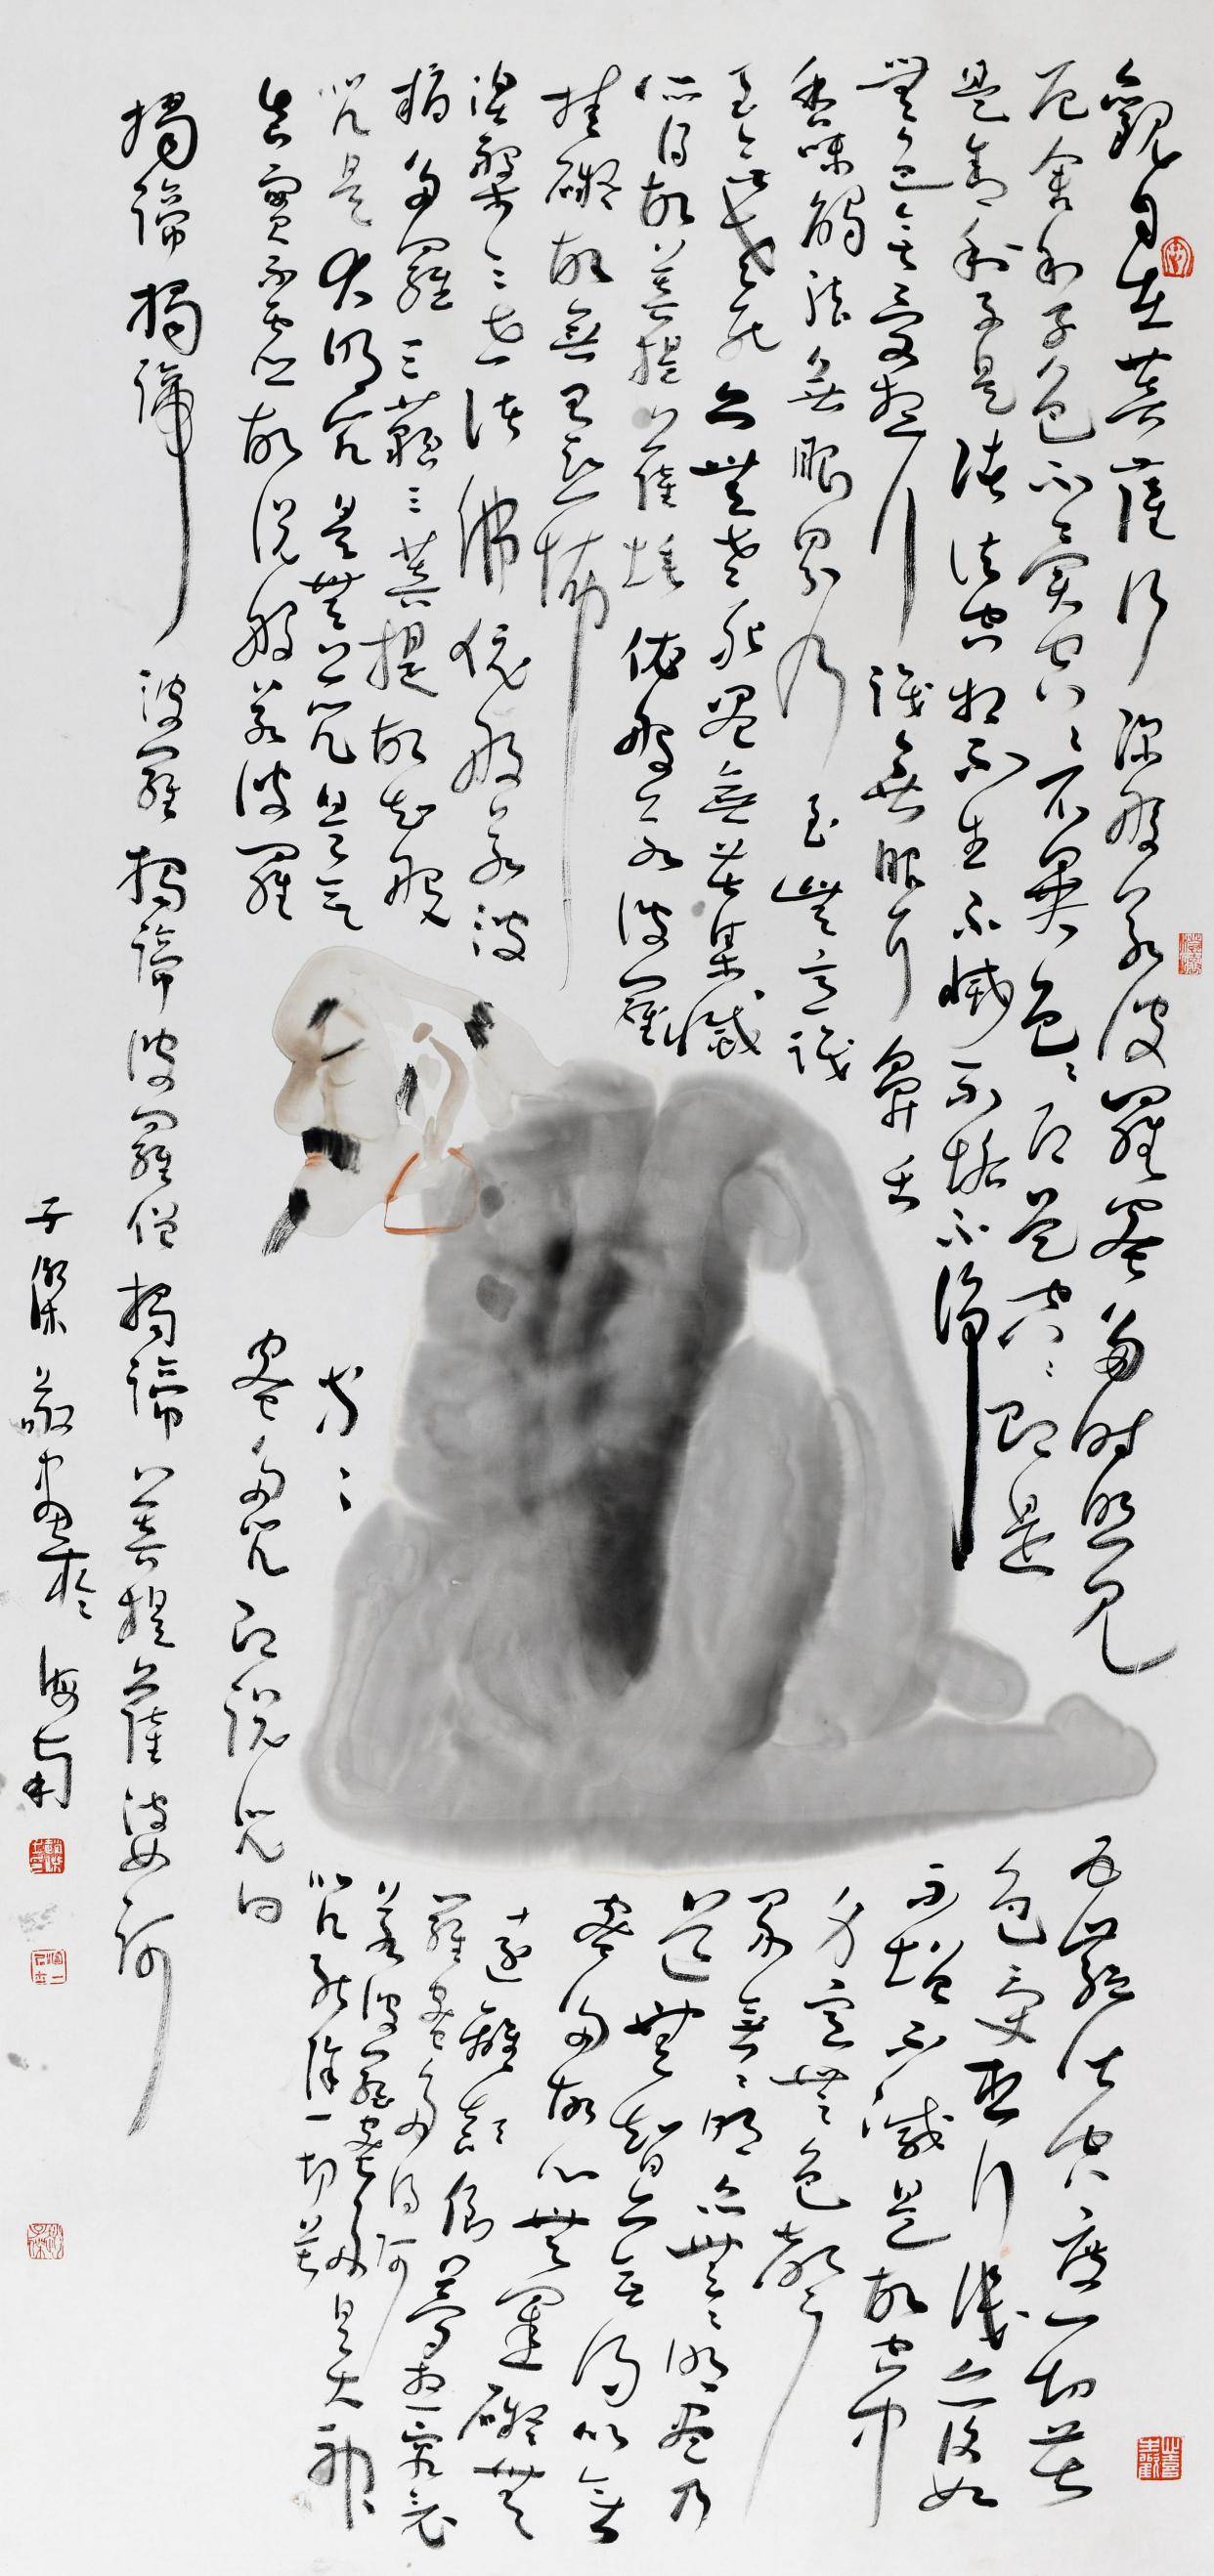 觀自在菩薩行深般若波羅蜜多時照見五蘊皆空度一切苦
厄舍利子色不異空空不異色色即是空空即是色受想行識亦復如
是舍利子是諸法空相不生不滅不垢不淨不增不減是故空中
無色無受想行識無眼耳鼻舌身意無色聲
香味觸法無眼界乃至無意識界無無明亦無無明盡乃
至無老死亦無老死盡無苦集滅道無智亦無得以無
所得故菩提薩埵依般若波羅蜜多故心無罣礙無
挂礙故無有恐怖遠離顛倒夢想究竟
涅槃三世諸佛依般若波羅蜜多得阿
耨多羅三藐三菩提故知般若波羅蜜多是大神
咒是大明咒是無上咒是無等等咒能除一切苦
真實不虛故說般若波羅蜜多咒即說咒曰
揭諦揭諦波羅揭諦波羅僧揭諦菩提薩婆訶
子傑敬畫於海南